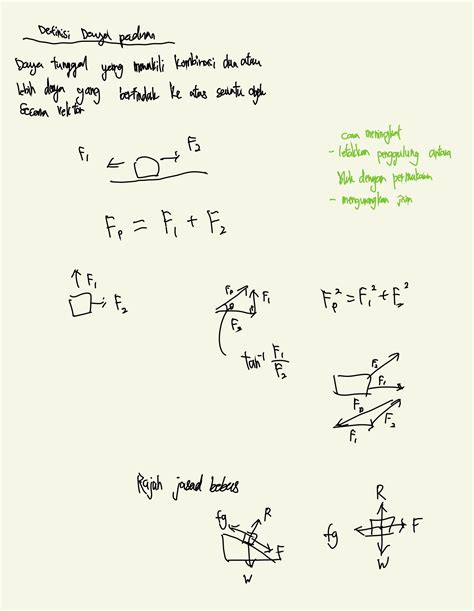 Definisi Daya paduan
Daya tunggal yang mewakili kombinasi dua atau
lebih daya yang bertindak ke atas suatu objek
secara vektor
F₁ F₂
Fp = F₁ + F₂
cara
- letakkan penggulung antara
blok dengan permukaan
- mengurangkan
F₁
F₂
Fp F₁
θ
F₂
Fp² = F₁² + F₂²
tan⁻¹ F₁/F₂
F₂
F₁
Fp
F₁ F₂
Rajah jasad bebas
fg R
F
W
R
fg F
W